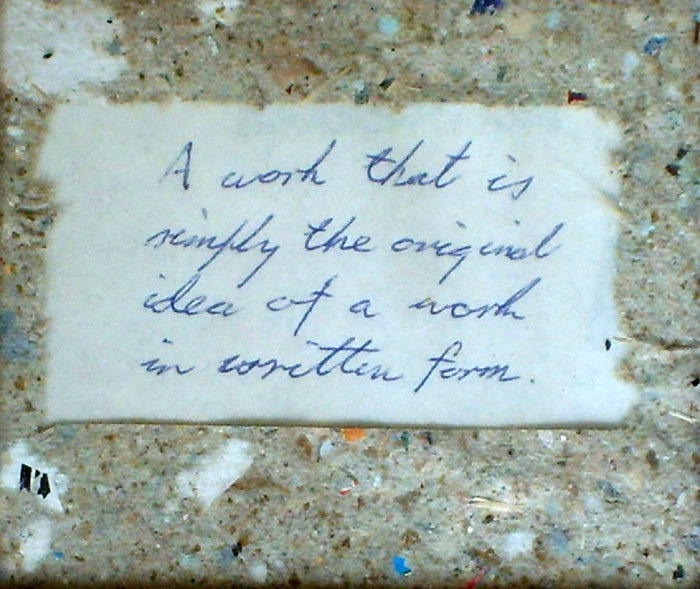 A work that is
simply the original
idea of a work
in written form.